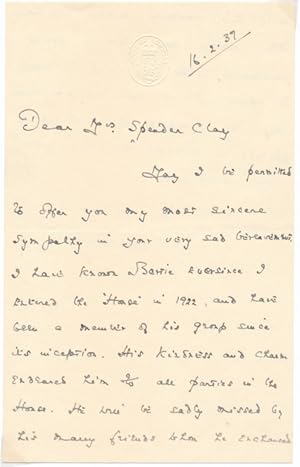 16.2.37
Dear Mrs. Spender Clay
May I be permitted
to offer you my most sincere
sympathy in your very sad bereavement.
I have known Bertie ever since I
entered the House in 1922, and have
been a member of his group since
its inception. His kindness and charm
endeared him to all parties in the
House. He will be sadly missed by
his many friends whom he